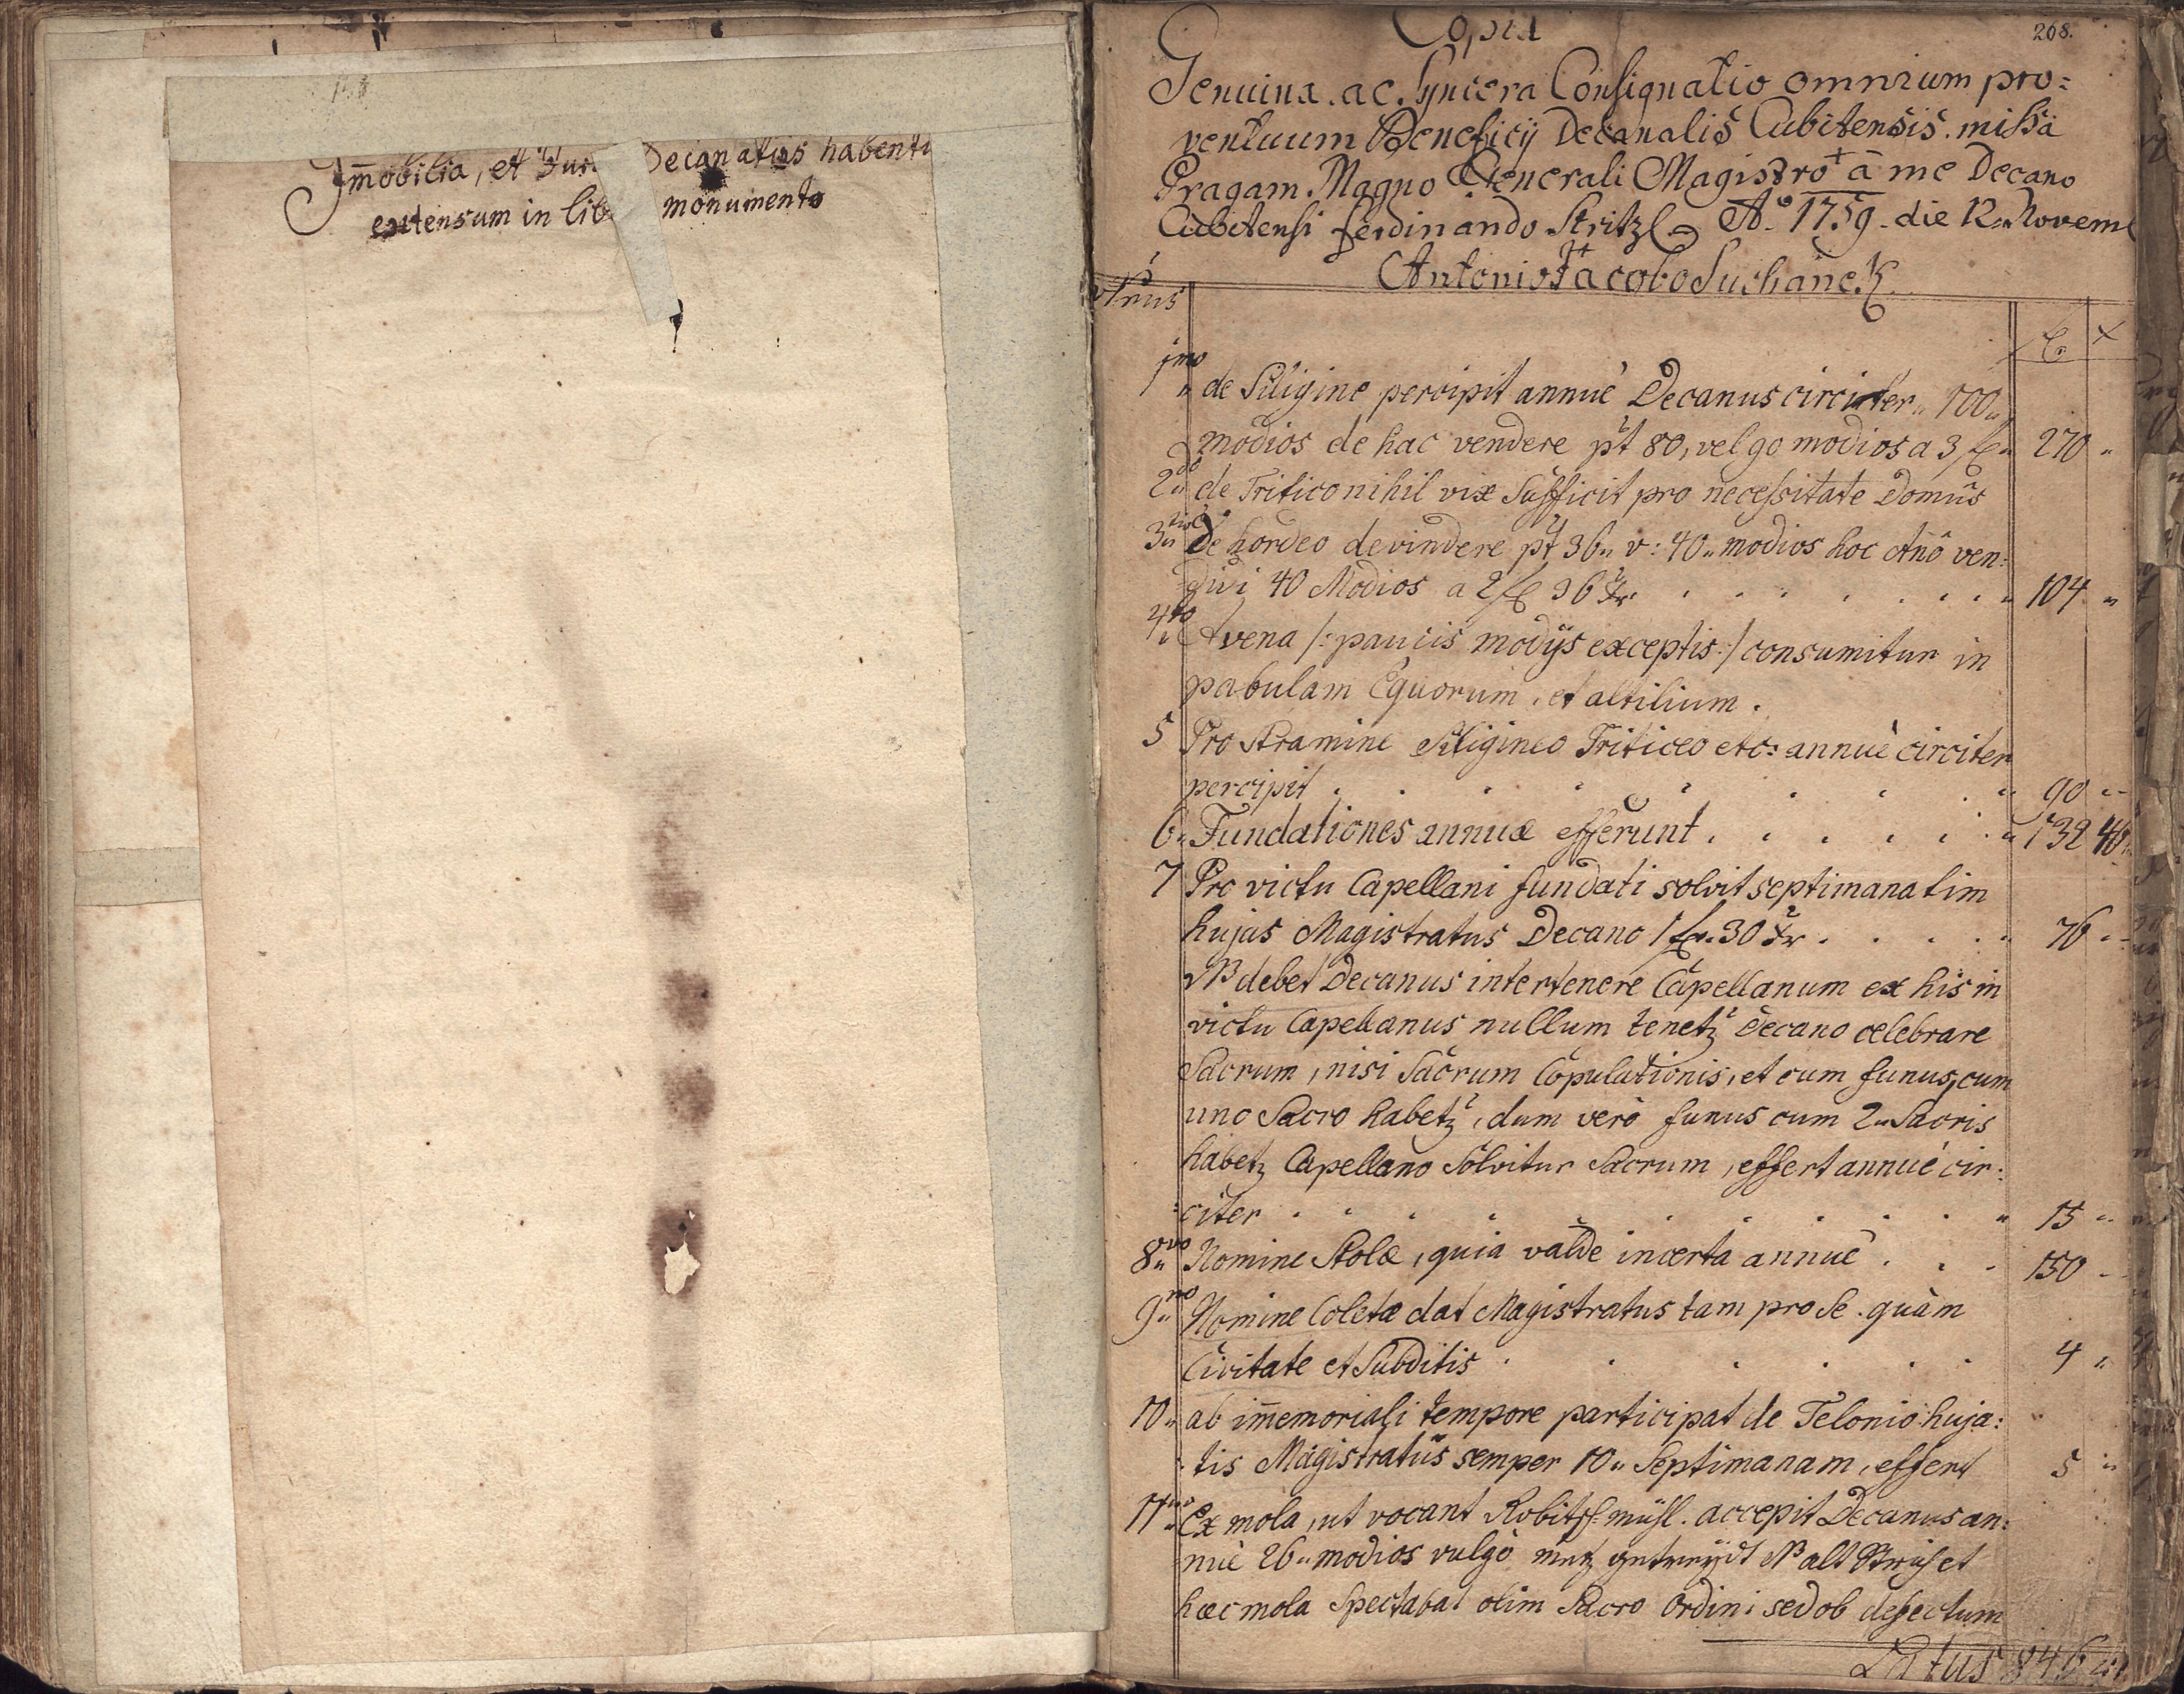 Im̄obilia, et Jura Decanatus habentu
extensum in lib monumento
Copia
268.
Genuina. ac. Syncera Consignatio omnium pro=
ventuum Beneficij Decanalis Cubitensis. missa
Pragam Magno Generali Magistro + â me Decano
Cubitensi ferdinando Stritzl Aº 1759. die 12. Novem
+ Antonio Jacobo Suchanek
fl x
1mo de Siligine percipit annuè Decanus circiter „ 100 „
modios de hac vendere pt 80, vel 90 modios a 3 fl „ 270 „
2do de Tritico nihil vix Sufficit pro necessitate Domûs
3tio De hordeo devindere pt 36 „ v: 40 „ modios hoc Año ven:
didi 40 Modios a 2 fl 36 xr . . . . . . . . 104 „
4to Avena /: paucis modijs exceptis :/ consumitur in
pabulam Equorum, et altilium.
5 Pro Stramine Siligineo Triticeo etc: annuè circiter
percipit . . . . . . . . 90 „
6 „ Fundationes annuæ efferunt . . . . . . „ 132 40 „
7 Pro victu Capellani fundati solvit septimanatim
hujas Magistratus Decano 1 fl. 30 xr . . . . . 76 „
NB debet Decanus intertenere Capellanum ex his in
victu Capellanus nullum tenetz Decano celebrare
Sacrum, nisi Sacrum Copulationis, et cum funus, cum
uno Sacro habetz, dum verò funus cum 2 „ Sacris
habetz Capellano Solvitur Sacrum, effert annuè cir:
:citer . . . . . . . . . . „ 15 „
8vo „ Nomine Stolæ, quia valde incerta annuè . . . 150 „
9no „ Nomine Coletæ dat Magistratus tam pro Se. quàm
Civitate et Subditis . . . . . . 4 „
10 „ ab im̄emoriali tempore participat de Telonio huja:
:tis Magistratûs semper 10 „ Septimanam, effert 5 „
11 „ Ex mola, ut vocant mühl. accepit Decanus an:
nuè 26 „ modios vulgò metz getreydt NB alt et
hæc mola Spectabat olim Sacro Ordini sed ob defectum
Latus 846